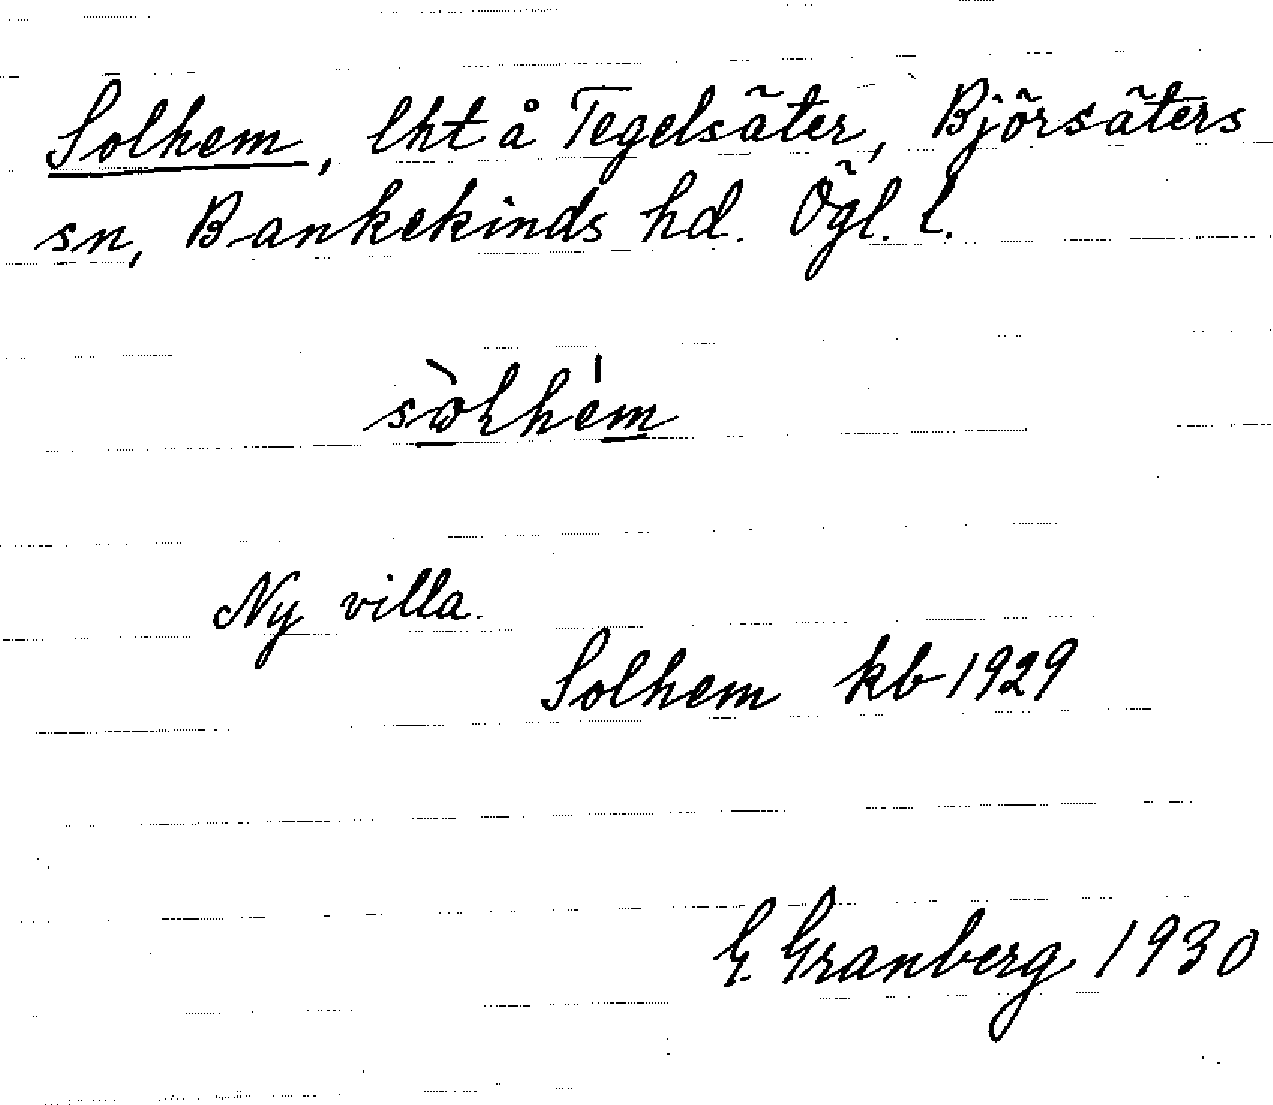 Solhem, lht å Tegelsäter, Björsäters
sn, Bankekinds hd. Ögl. l.
sòlhém
Ny villa.
Solhem kb 1929
G. Granberg 1930